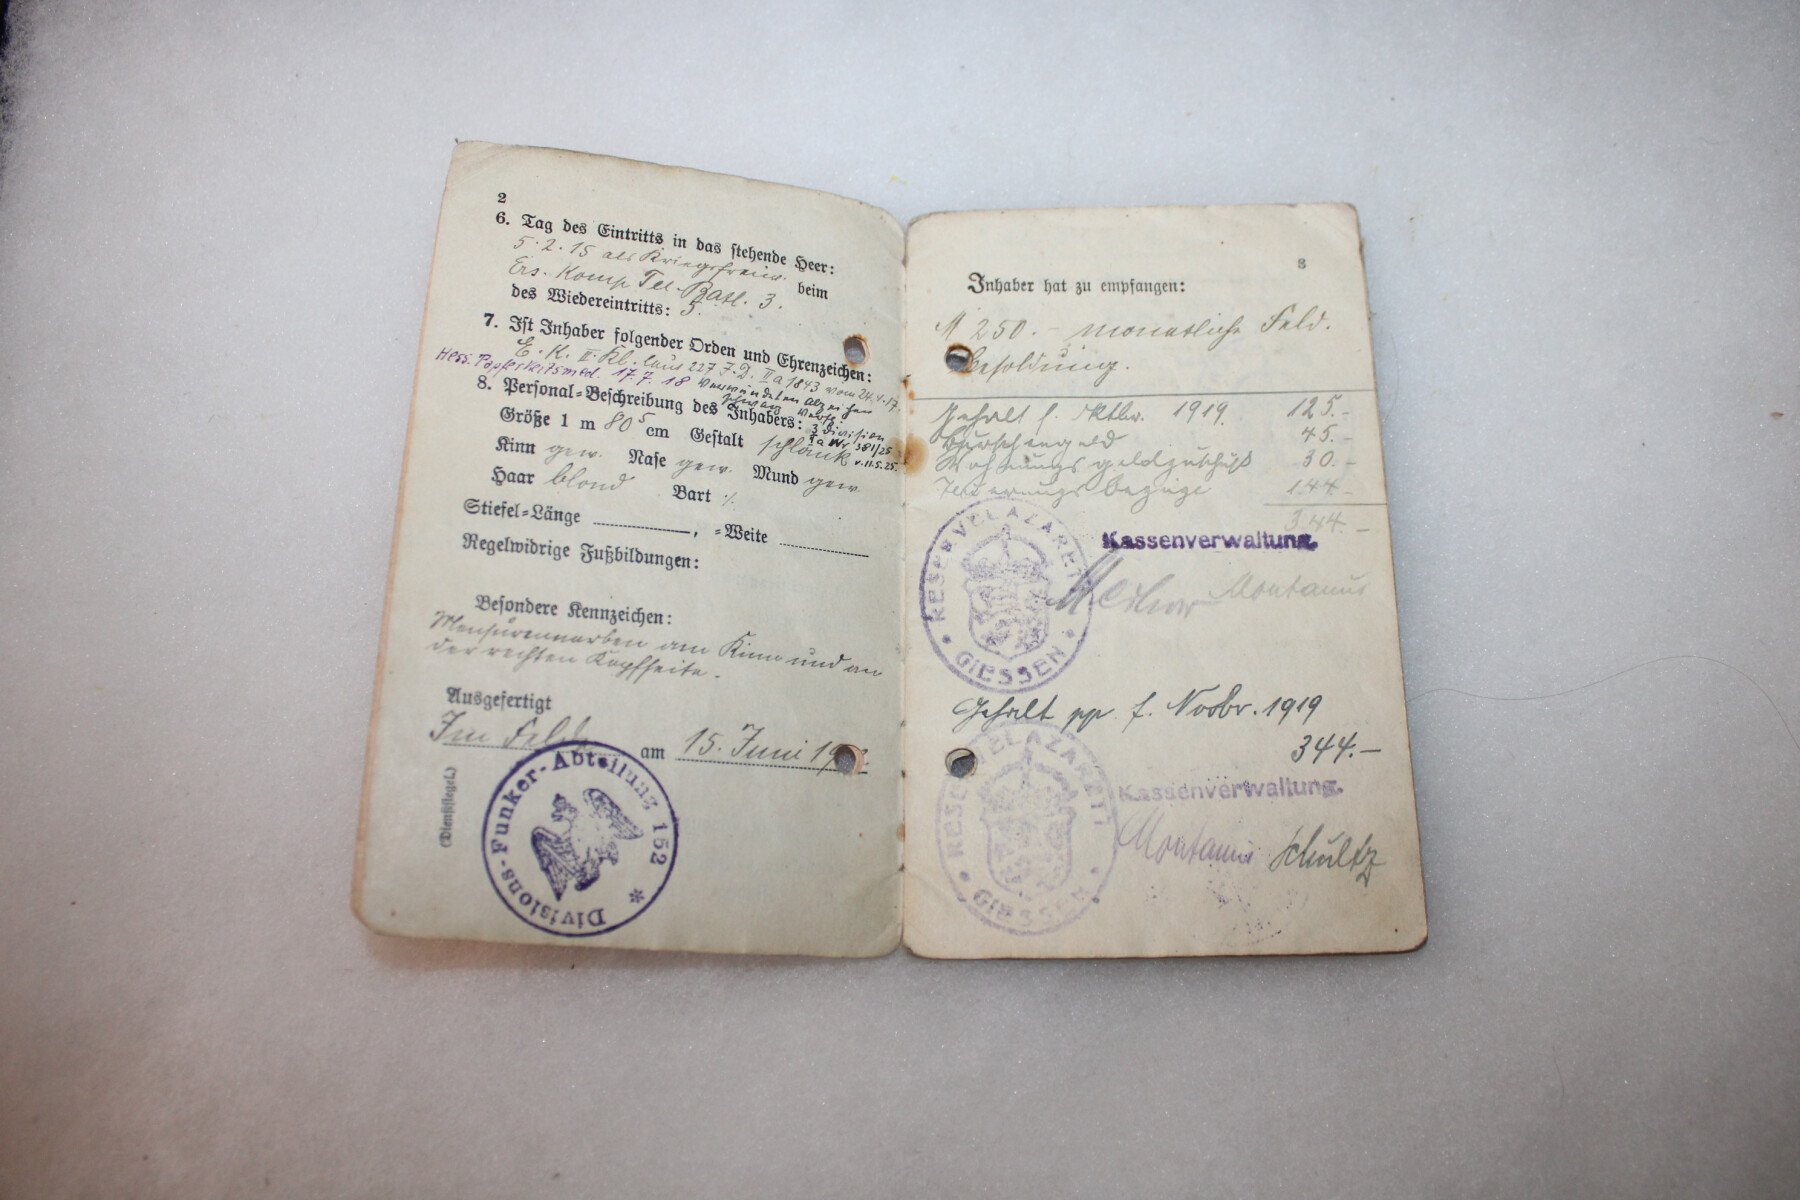 2
6. Tag des Eintritts in das stehende Heer:
5.2.15 als Kriegsfreiw. beim
Ers. Komp. Tel. Batl. 3.
des Wiedereintritts:
7. Ist Inhaber folgender Orden und Ehrenzeichen:
E. K. II. Kl. laut 227 J. D. IIa 1843 vom 24.4.17.
Hess. Tapferkeitsmed. 17.7.18 Verwundeten Abzeichen
schwarz
8. Personal-Beschreibung des Inhabers: 3 Division
Ia Nr 381/25
v. 11.5.25.
Größe 1 m 80⁵ cm Gestalt schlank
Kinn gew. Nase gew. Mund gew.
Haar blond Bart ./.
Stiefel-Länge , -Weite
Regelwidrige Fußbildungen:
Besondere Kennzeichen:
Mensurennarben am Kinn und an
der rechten Kopfseite.
Ausgefertigt
Im Felde am 15. Juni 19
(Dienstsiegel.)
Divisions-Funker-Abteilung 152 *
3
Inhaber hat zu empfangen:
M 250.- monatliche Feld.
besoldung.
Gehalt f. Oktbr. 1919. 125.-
Burschengeld 45.-
Wohnungsgeldzuschuß 30.-
Teuerungsbezüge 144.-
344.-
RESERVELAZARETT
• GIESSEN •
Kassenverwaltung.
Montanus
Gehalt pp f. Novbr. 1919
344.-
RESERVELAZARETT
• GIESSEN •
Kassenverwaltung.
Montanus Schultz